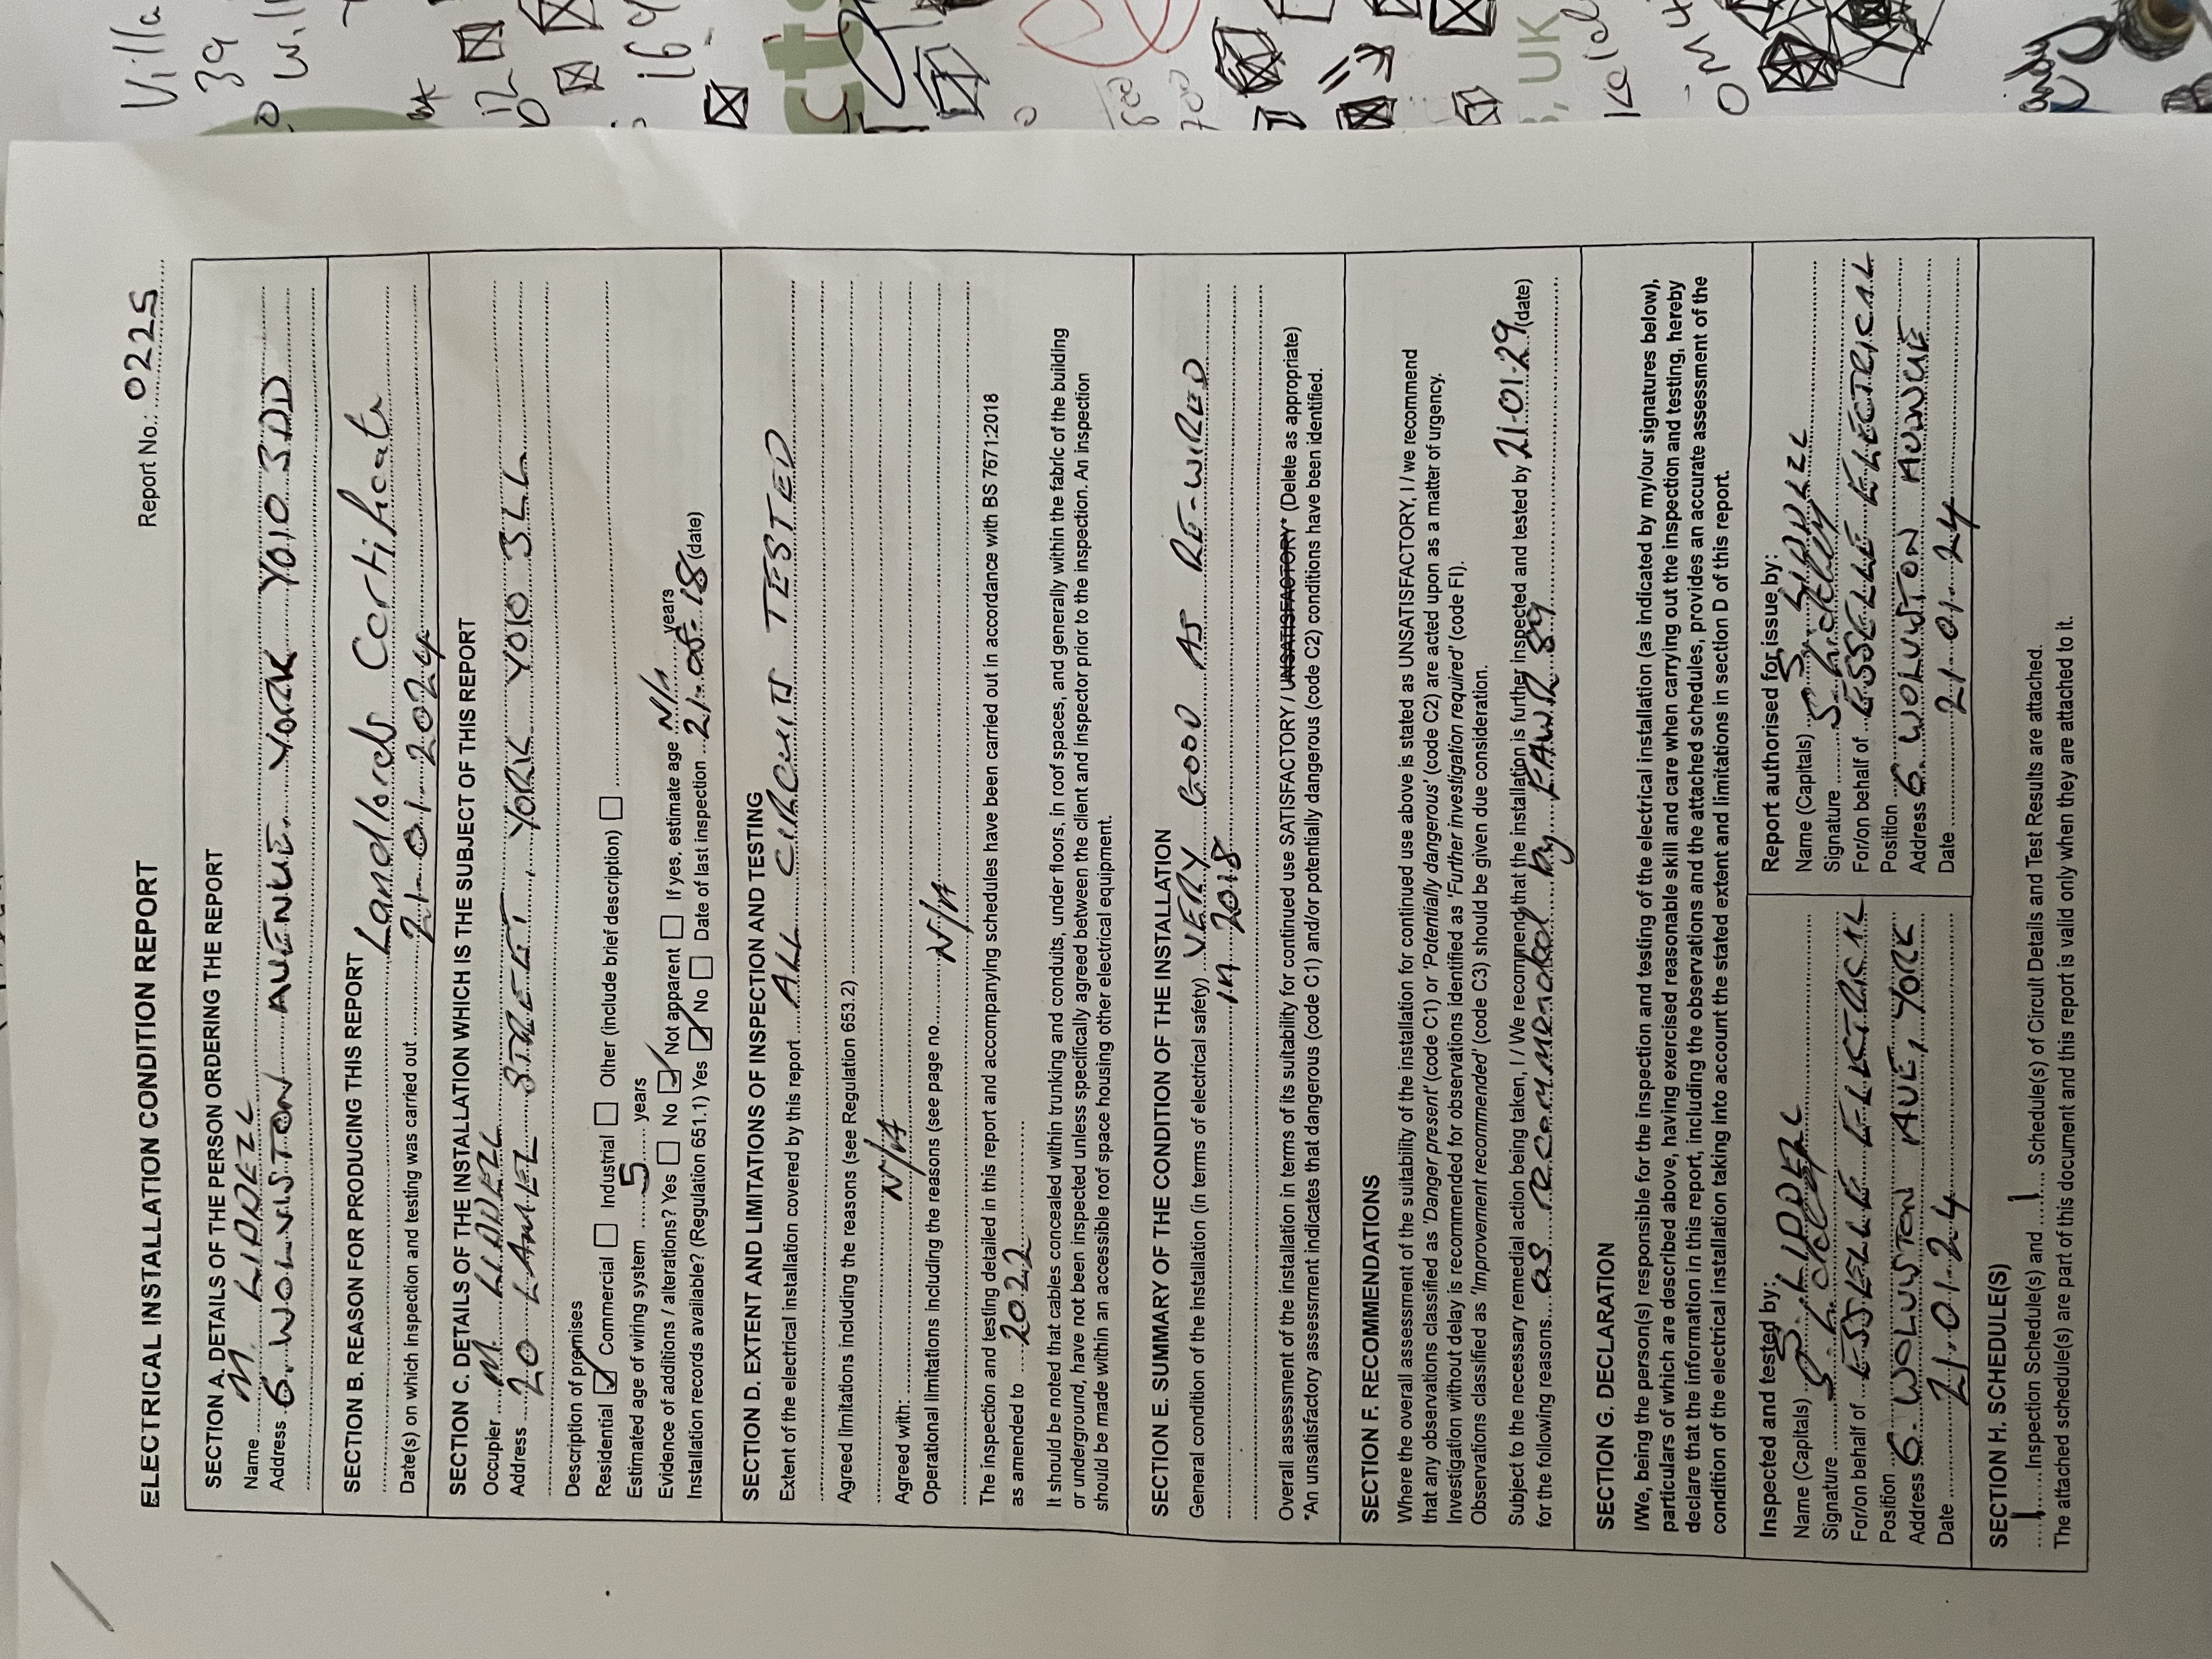 ELECTRICAL INSTALLATION CONDITION REPORT
Report No.: 0225
SECTION A. DETAILS OF THE PERSON ORDERING THE REPORT
Name M. LIDDELL
Address 6. WOLVISTON AVENUE. YORK YO10 3DD
SECTION B. REASON FOR PRODUCING THIS REPORT Landlords Certificate
Date(s) on which inspection and testing was carried out 21-01-2024
SECTION C. DETAILS OF THE INSTALLATION WHICH IS THE SUBJECT OF THIS REPORT
Occupier M LIDDELL
Address 20 LAMEL STREET, YORK YO10 3LL
Description of premises
Residential ☑ Commercial ☐ Industrial ☐ Other (include brief description) ☐
Estimated age of wiring system 5 years
Evidence of additions / alterations? Yes ☐ No ☑ Not apparent ☐ If yes, estimate age N/A years
Installation records available? (Regulation 651.1) Yes ☑ No ☐ Date of last inspection 21-05-18 (date)
SECTION D. EXTENT AND LIMITATIONS OF INSPECTION AND TESTING
Extent of the electrical installation covered by this report ALL CIRCUITS TESTED
Agreed limitations including the reasons (see Regulation 653.2)
Agreed with: N/A
Operational limitations including the reasons (see page no N/A
The inspection and testing detailed in this report and accompanying schedules have been carried out in accordance with BS 7671:2018
as amended to 2022
It should be noted that cables concealed within trunking and conduits, under floors, in roof spaces, and generally within the fabric of the building
or underground, have not been inspected unless specifically agreed between the client and inspector prior to the inspection. An inspection
should be made within an accessible roof space housing other electrical equipment.
SECTION E. SUMMARY OF THE CONDITION OF THE INSTALLATION
General condition of the installation (in terms of electrical safety) VERY GOOD AS RE-WIRED
in 2018
Overall assessment of the installation in terms of its suitability for continued use SATISFACTORY / UNSATISFACTORY* (Delete as appropriate)
*An unsatisfactory assessment indicates that dangerous (code C1) and/or potentially dangerous (code C2) conditions have been identified.
SECTION F. RECOMMENDATIONS
Where the overall assessment of the suitability of the installation for continued use above is stated as UNSATISFACTORY, I / we recommend
that any observations classified as 'Danger present' (code C1) or 'Potentially dangerous' (code C2) are acted upon as a matter of urgency.
Investigation without delay is recommended for observations identified as 'Further investigation required' (code FI).
Observations classified as 'Improvement recommended' (code C3) should be given due consideration.
Subject to the necessary remedial action being taken, I / We recommend that the installation is further inspected and tested by 21-01-29 (date)
for the following reasons as recommended by EAWR 89
SECTION G. DECLARATION
I/We, being the person(s) responsible for the inspection and testing of the electrical installation (as indicated by my/our signatures below),
particulars of which are described above, having exercised reasonable skill and care when carrying out the inspection and testing, hereby
declare that the information in this report, including the observations and the attached schedules, provides an accurate assessment of the
condition of the electrical installation taking into account the stated extent and limitations in section D of this report.
Inspected and tested by:
Name (Capitals) S. LIDDELL
Signature S. Liddell
For/on behalf of ESSELLE ELECTRICAL
Position
Address 6. WOLVISTON AVE, YORK
Date 21.01.24
Report authorised for issue by:
Name (Capitals) S. LIDDELL
Signature S. Liddell
For/on behalf of ESSELLE ELECTRICAL
Position
Address 6. WOLVISTON AVENUE
Date 21.01.24
SECTION H. SCHEDULE(S)
1 Inspection Schedule(s) and 1 Schedule(s) of Circuit Details and Test Results are attached.
The attached schedule(s) are part of this document and this report is valid only when they are attached to it.
Villa
39
UK